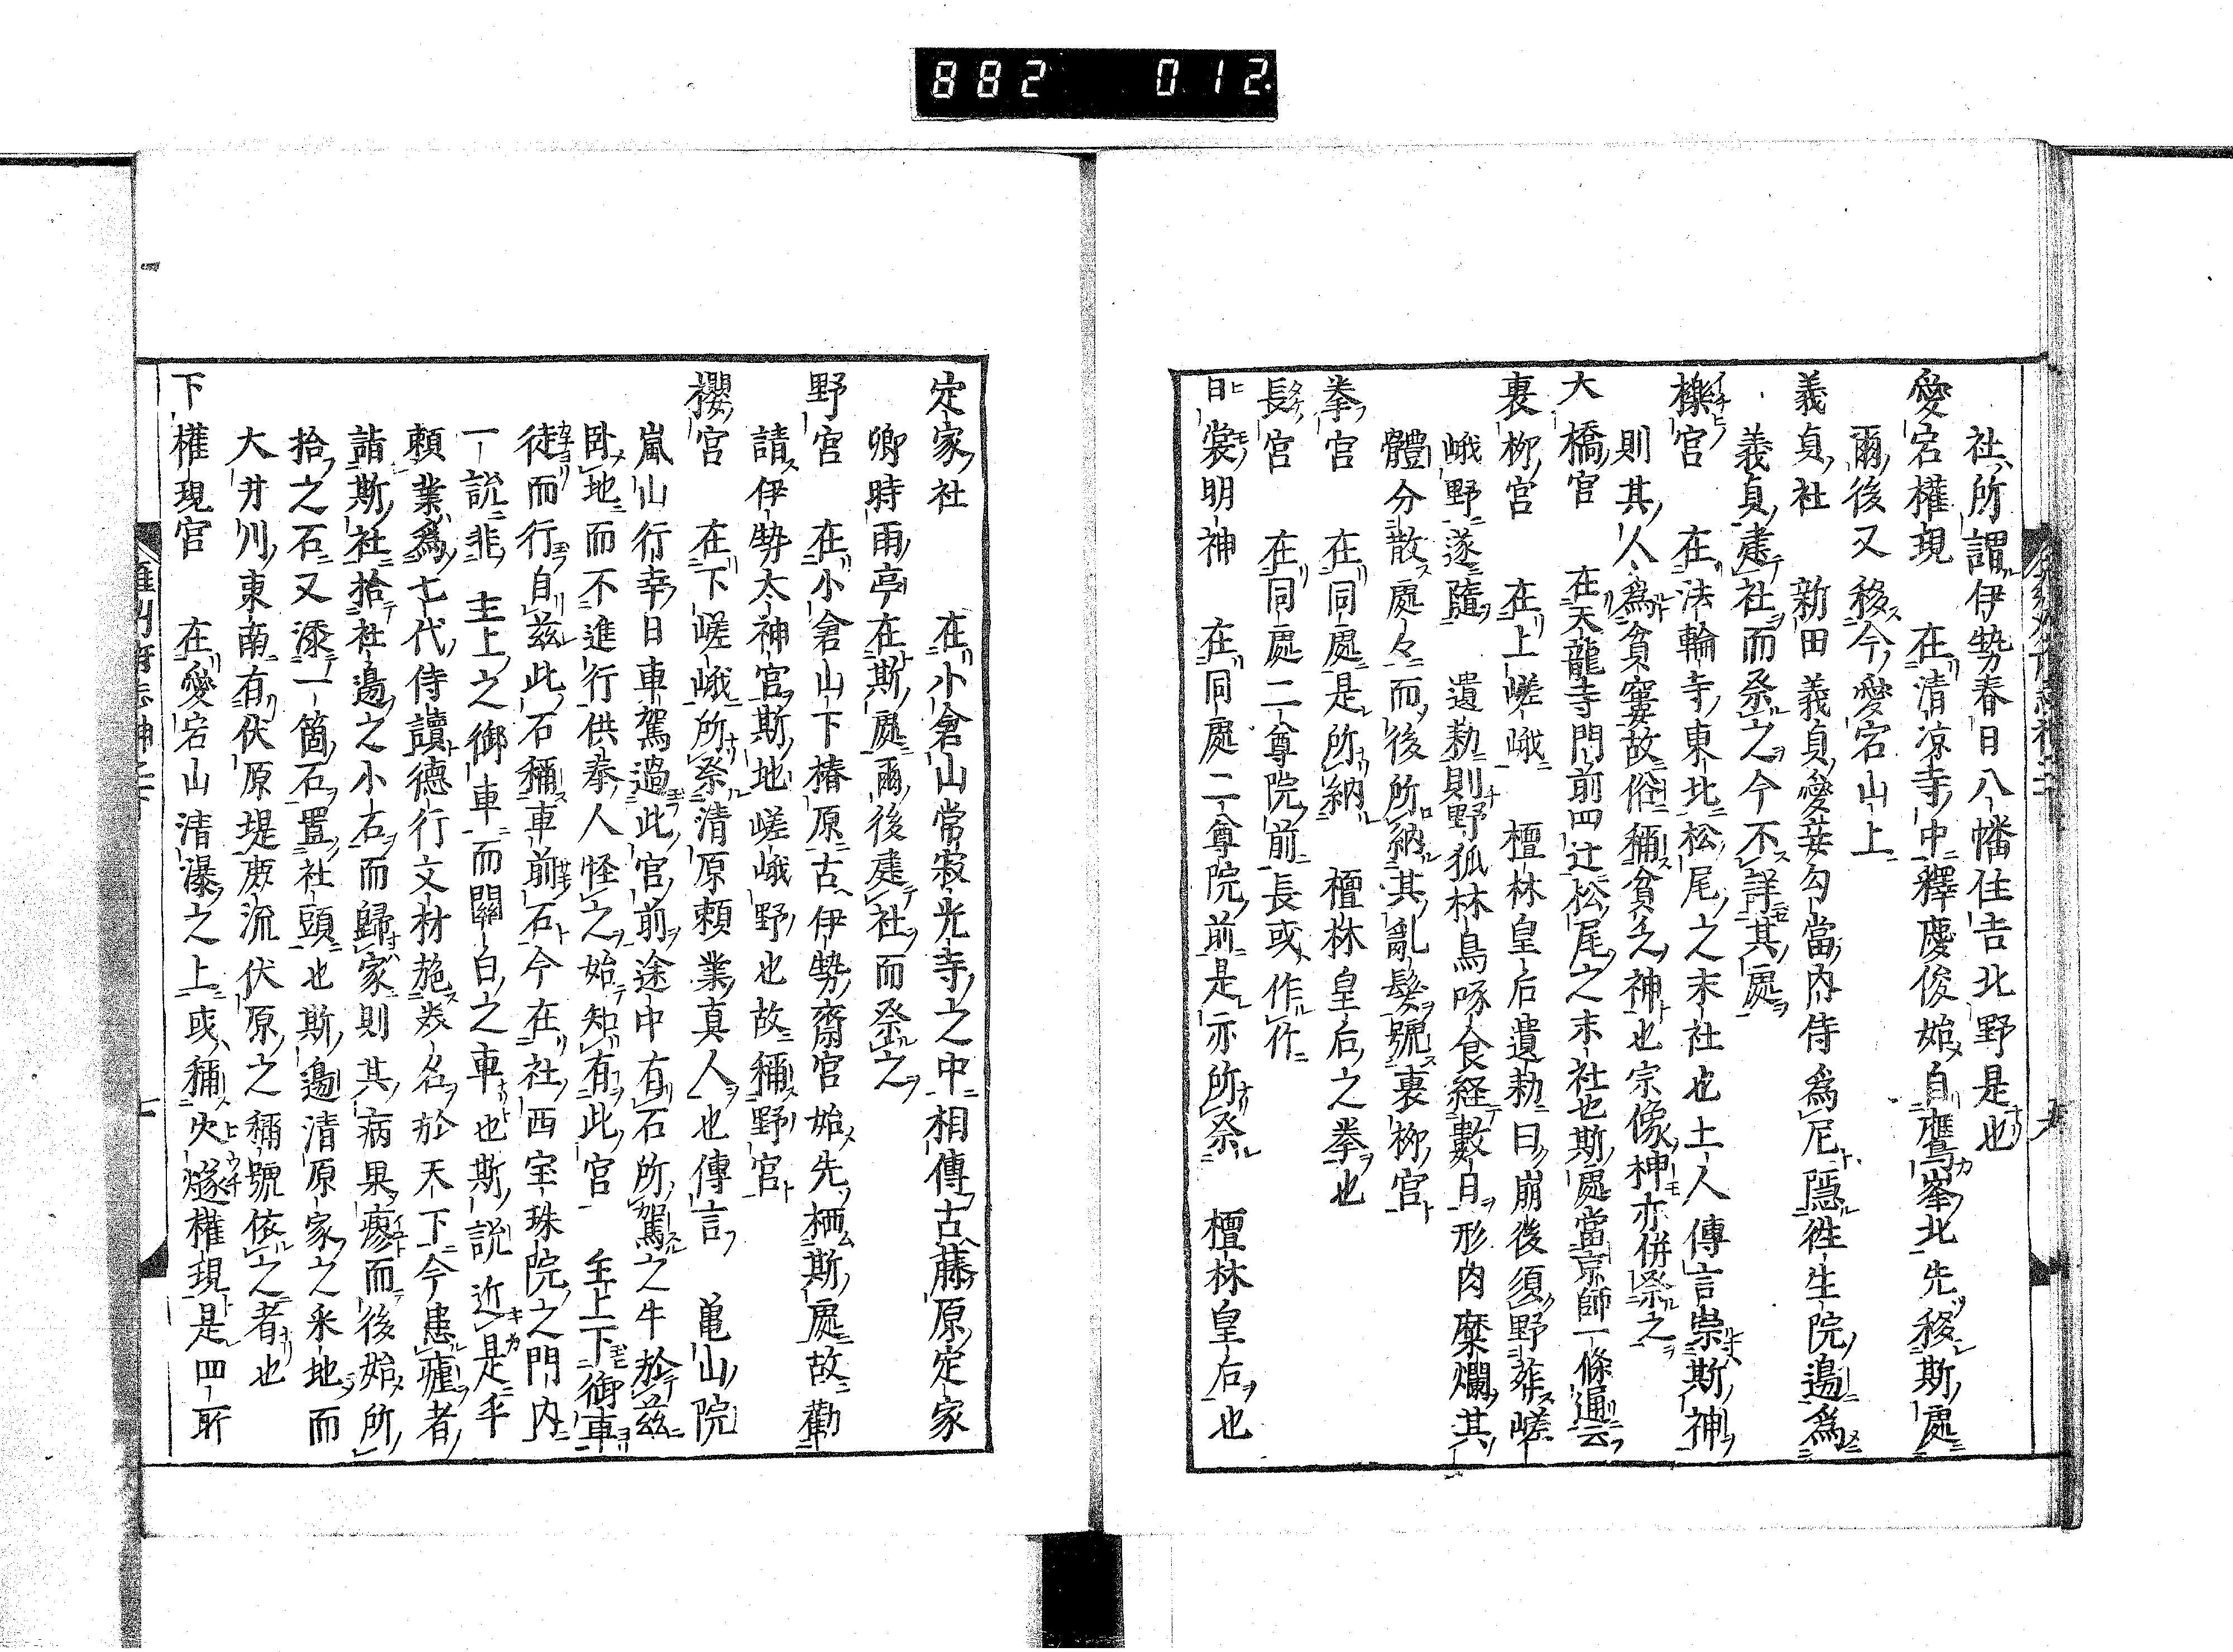 882 012
社所謂伊勢春日八幡住吉北野是也
愛宕權現 在清凉寺中釋慶俊始自鷹峯北先移斯處
爾後又移今愛宕山上
義貞社 新田義貞愛妾勾當内侍爲尼隱徃生院邊爲
義貞建社而祭之今不詳其處
櫟宮 在法輪寺東北松尾之末社也土人傳言崇斯神
則其人爲貧窶故俗稱貧乏神也宗像神亦併祭之
大橋宮 在天龍寺門前四辻松尾之末社也斯處當京師一條通云
裏柳宮 在上嵯峨 檀林皇后遺勅曰崩後須野葬嵯
峨野遂隨 遺勅則野狐林鳥啄食経數日形肉糜爛其
體分散處々而後所納其亂髮號裏柳宮
拳宮 在同處是所納 檀林皇后之拳也
長宮 在同處二尊院前長或作作
日裳明神 在同處二尊院前是亦所祭 檀林皇后也
定家社 在小倉山常寂光寺之中相傳古藤原定家
卿時雨亭在斯處爾後建社而祭之
野宮 在小倉山下椿原古伊勢齋宮始先栖斯處故勸
請伊勢太神宮斯地嵯峨野也故稱野宮
櫻宮 在下嵯峨所祭清原頼業真人也傳言 亀山院
嵐山行幸日車駕過此宮前途中有石所駕之牛於茲
臥地而不進行供奉人怪之始知有此宮 主上下御車
徒而行自茲此石稱車前石今在社西宝珠院之門内
一說非 主上之御車而關白之車也斯說近是乎
頼業爲七代侍讀德行文材施㳟名於天下今患瘧者
詣斯社拾社邊之小石而歸家則其病果瘳而後始所
拾之石又添一箇石置社頭也斯邊清原家之釆地而
大井川東南有伏原堤原流伏原之稱號依之者也
下權現宮 在愛宕山清瀑之上或稱火燧權現是四所